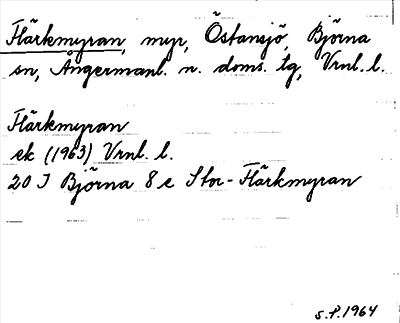 Flärkmyran, myr, Östansjö, Björna
sn, Ångermanl. n. doms. tg, Vrnl. l.
Flärkmyran
ek (1963) Vrnl. l.
20 J Björna 8 e Stor-Flärkmyran
S.P. 1964